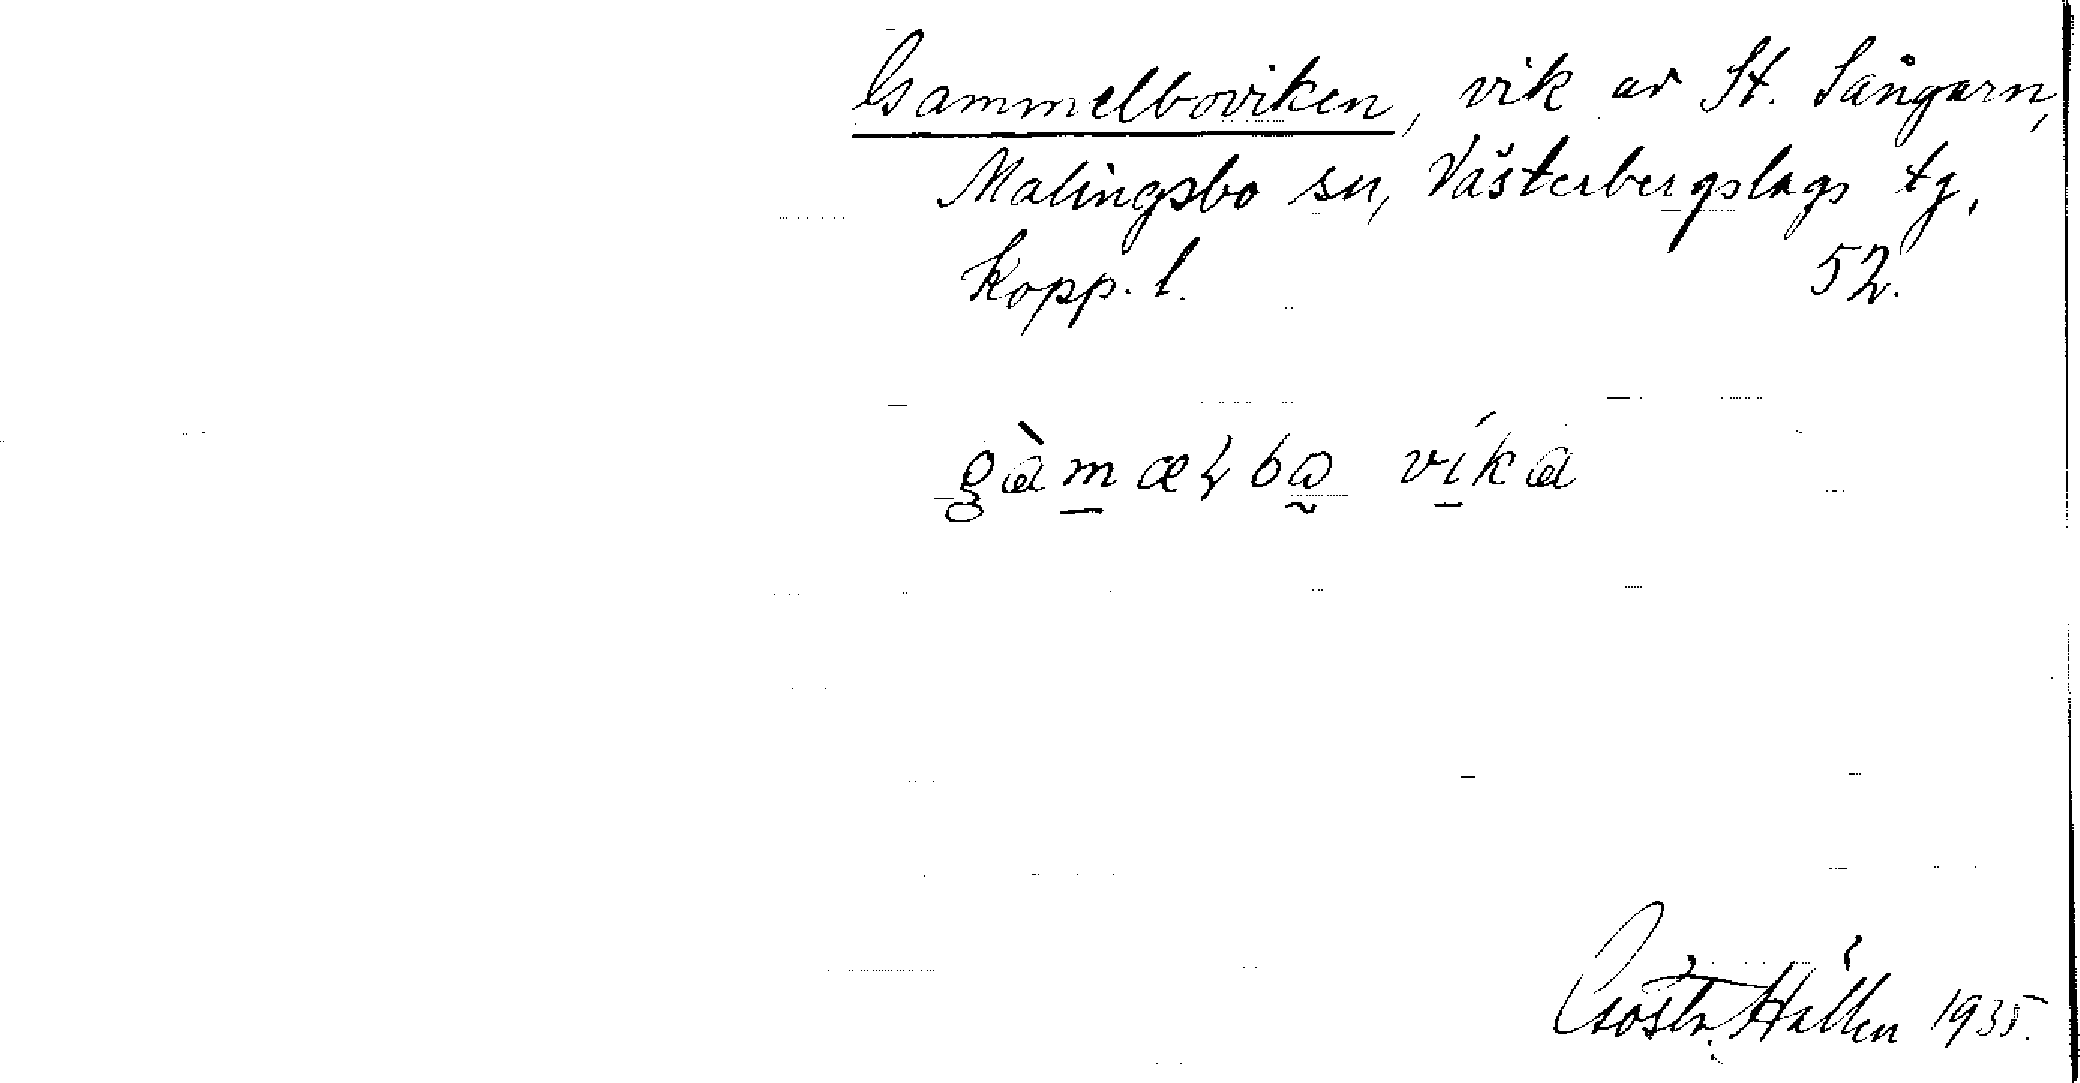 Gammelboviken, vik av St. Sångarn,
Malingsbo sn, Västerbergslags tg,
Kopp. l. 52.
gàmæɽbɷ víka
Gösta Hallén 1935.